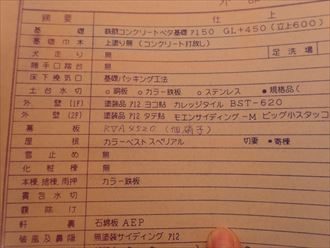 摘要 仕上
基礎 鉄筋コンクリートベタ基礎 ア150 GL+450 (立上600)
基礎巾木 上塗り無 (コンクリート打放し)
犬走り 無 足洗場
勝手口踏台 無
床下換気口 基礎パッキング工法
土台水切 ○銅板 ○カラー鉄板 ○ステンレス ●規格品(
外壁(1F) 塗装品 ア12 ヨコ貼 カレッジタイル BST-620
外壁(2F) 塗装品 ア12 タテ貼 モエンサイディング-M ビッグ小スタッコ
幕板
屋根 カラーベスト スペリアル 切妻 ●寄棟
雪止め 無
化粧棟 無
本棟, 捨棟, 雨押 カラー鉄板
貫包水切
霧除け
軒裏 石綿板 AEP
破風及鼻隠 無塗装サイディング ア12